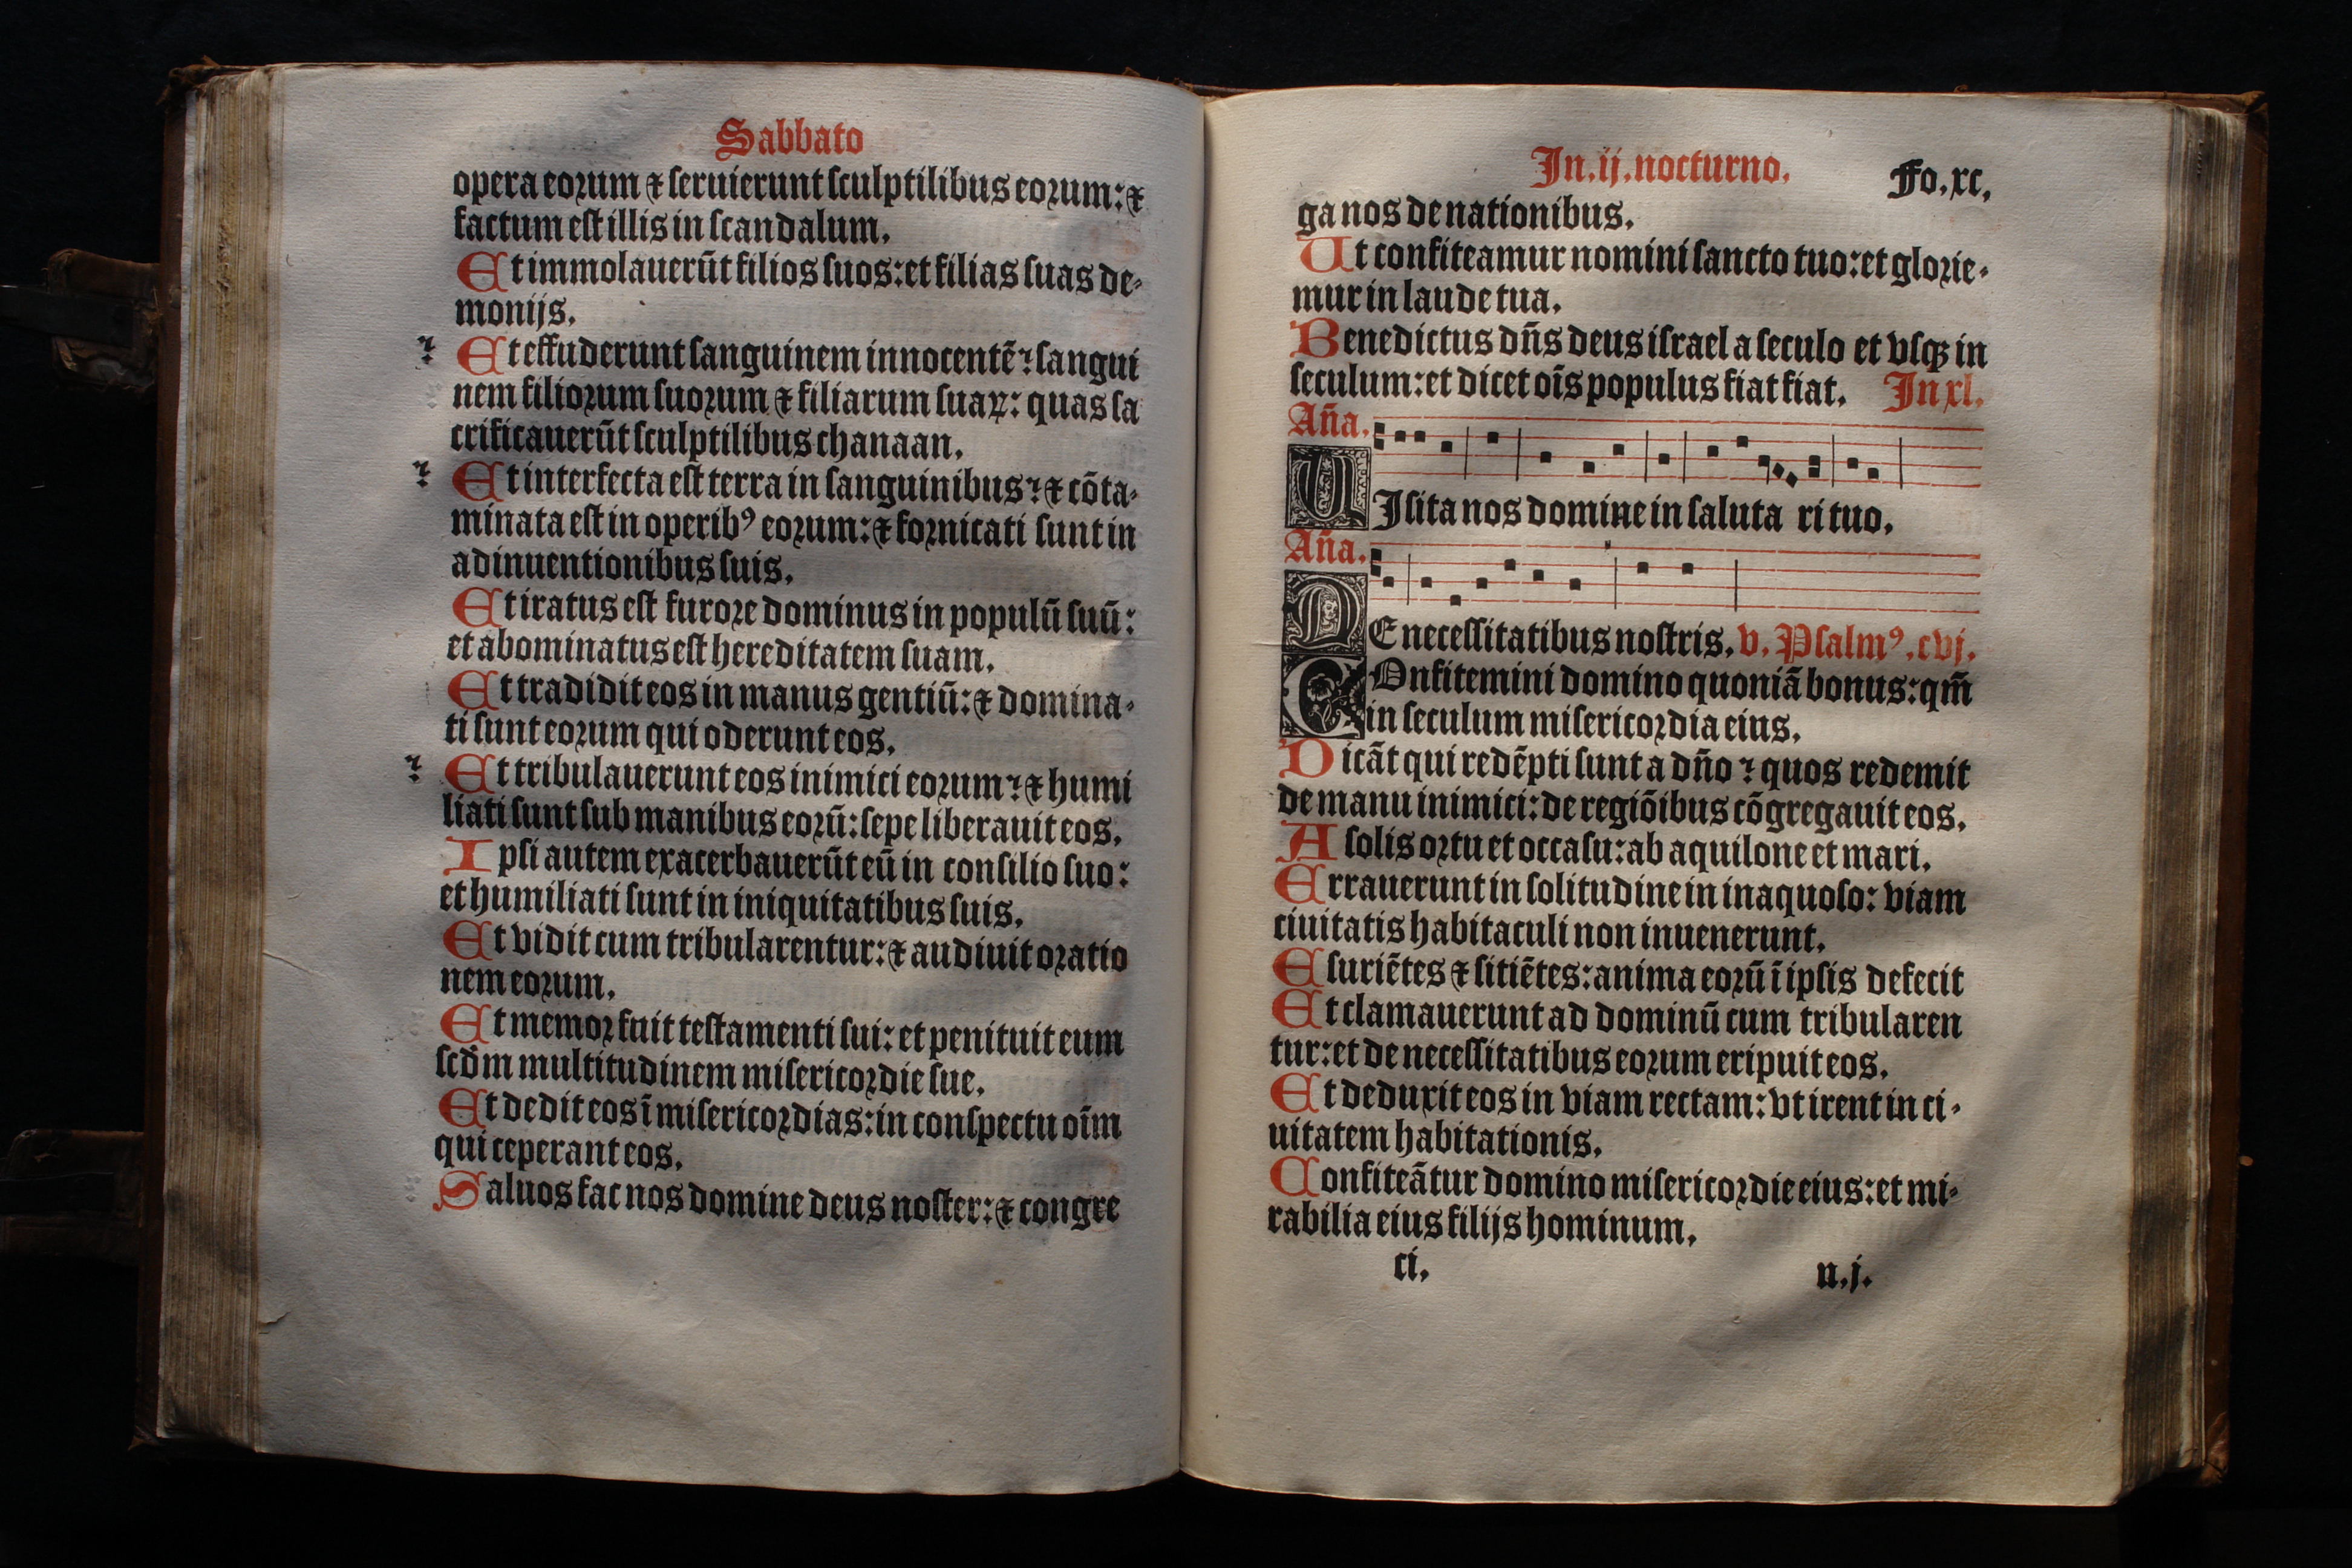 Sabbato
opera eorum ⁊ ſeruierunt ſculptilibus eorum: ⁊
factum eſt illis in ſcandalum.
Et immolauerūt filios ſuos: et filias ſuas de-
monijs.
Et effuderunt ſanguinem innocentē: ſangui
nem filiorum ſuorum ⁊ filiarum ſuaꝝ: quas ſa
crificauerūt ſculptilibus chanaan.
Et interfecta eſt terra in ſanguinibus: ⁊ cōta-
minata eſt in operibꝰ eorum: ⁊ fornicati ſunt in
adinuentionibus ſuis.
Et iratus eſt furore dominus in populū ſuū:
et abominatus eſt hereditatem ſuam.
Et tradidit eos in manus gentiū: ⁊ domina-
ti ſunt eorum qui oderunt eos.
Et tribulauerunt eos inimici eorum: ⁊ humi
liati ſunt ſub manibus eorū: ſepe liberauit eos.
Ipſi autem exacerbauerūt eū in conſilio ſuo:
et humiliati ſunt in iniquitatibus ſuis.
Et vidit cum tribularentur: ⁊ audiuit oratio
nem eorum.
Et memor fuit teſtamenti ſui: et penituit eum
ſcd̄m multitudinem miſericordie ſue.
Et dedit eos ī miſericordias: in conſpectu oīm
qui ceperant eos.
Saluos fac nos domine deus noſter: ⁊ congre
In.ij.nocturno. Fo.xc.
ga nos de nationibus.
Ut confiteamur nomini ſancto tuo: et glorie-
mur in laude tua.
Benedictus dn̄s deus iſrael a ſeculo et vſqꝫ in
ſeculum: et dicet oīs populus fiat fiat. In xl.
An̄a.
UIſita nos domine in ſaluta ri tuo.
An̄a.
DE neceſſitatibus noſtris. v. Pſalmꝰ.cvj.
COnfitemini domino quoniā bonus: qm̄
in ſeculum miſericordia eius.
Dicāt qui redēpti ſunt a dn̄o: quos redemit
de manu inimici: de regiōibus cōgregauit eos.
A ſolis ortu et occaſu: ab aquilone et mari.
Errauerunt in ſolitudine in inaquoſo: viam
ciuitatis habitaculi non inuenerunt.
Eſuriētes ⁊ ſitiētes: anima eorū ī ipſis defecit
Et clamauerunt ad dominū cum tribularen
tur: et de neceſſitatibus eorum eripuit eos.
Et deduxit eos in viam rectam: vt irent in ci-
uitatem habitationis.
Confiteātur domino miſericordie eius: et mi-
rabilia eius filijs hominum.
ci. n.j.